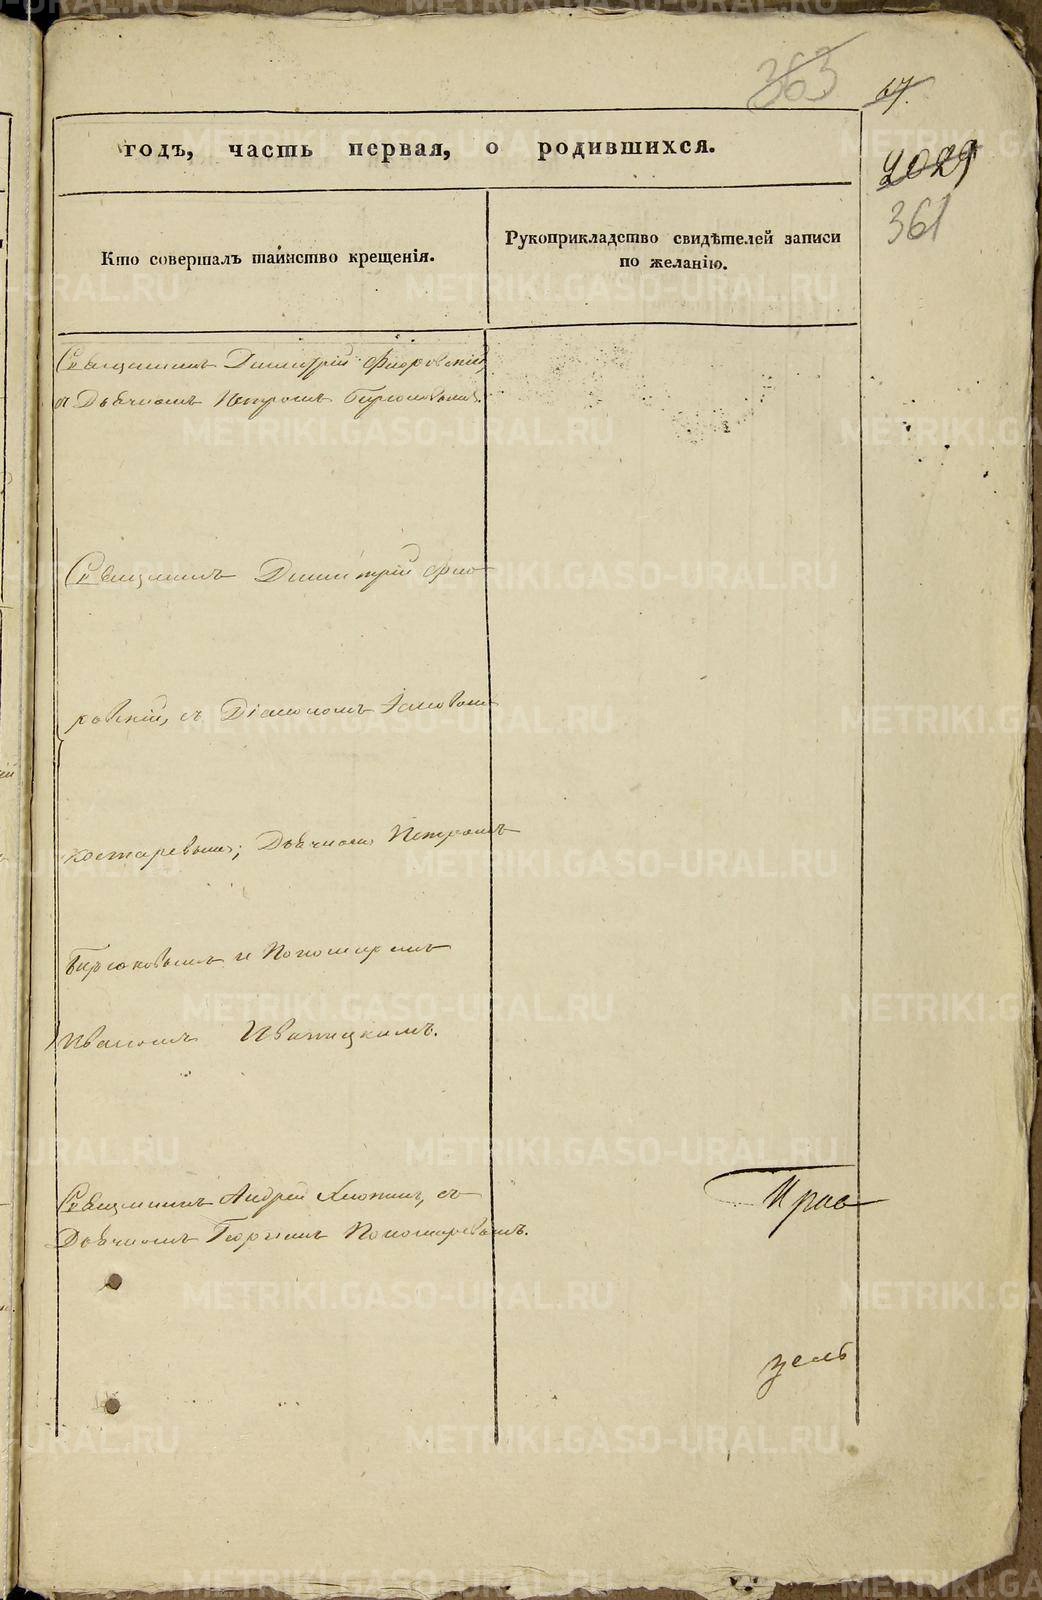 363
67.
2029
361
годъ, часть первая, о родившихся.
Кто совершалъ таинство крещенія.
Рукоприкладство свидѣтелей записи
по желанію.
Священникъ Димитрій Флоровскій,
съ Дьячкомъ Петромъ Бирюковымъ.
Священникъ Димитрій Фло-
ровскій, съ Діакономъ Іаковомъ
Костаревымъ; Дьячкомъ Петромъ
Бирюковымъ и Пономаремъ
Иваномъ Иваницкимъ.
Священникъ Андрей съ
Дьячкомъ Георгіемъ Пономаревымъ.
METRIKI.GASO-URAL.RU